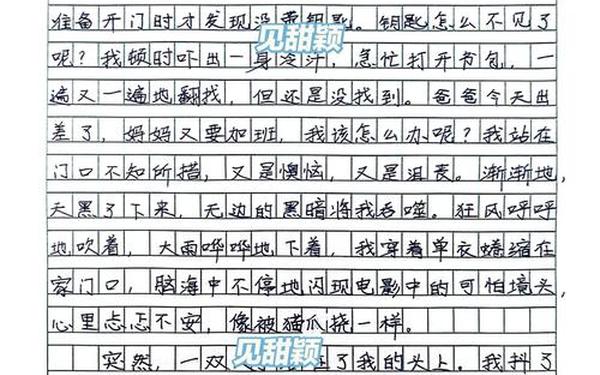 准备开门时才发现没带钥匙。钥匙怎么不见了
见甜颖
呢？我顿时吓出一身冷汗，急忙打开书包，一
遍又一遍地翻找，但还是没找到。爸爸今天出
差了，妈妈又要加班，我该怎么办呢？我站在
门口不知所措，又是懊恼，又是沮丧。渐渐地，
天黑了下来，无边的黑暗将我吞噬。狂风呼呼
地吹着，大雨哗哗地下着，我穿着单衣蜷缩在
家门口，脑海中不停地闪现电影中的可怕镜头，
心里忐忑不安，像被猫爪挠一样。
突然，一双在了我的头上。我抖了
见甜颖